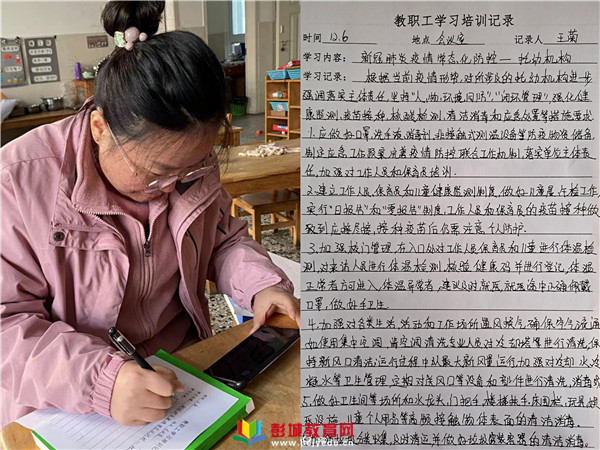 教职工学习培训记录
时间 12.6 地点 会议室 记录人 王菊
学习内容: 新冠肺炎疫情常态化防控—托幼机构
学习记录: 根据当前疫情形势,对所有的托幼机构进一步
强调落实主体责任,坚持"人,物,环境同防","闭环管理",强化健
康监测,疫苗接种,核酸检测,清洁消毒和应急处置等措施要求
1.应做好口罩,洗手液,消毒剂,非接触式测温设备等防疫物资储备,
制定应急工作预案 疫情防控联合工作机制,落实单位主体责
任,加强对工作人员和保育员培训.
2.建立工作人员,保育员和儿童健康监测制度,做好儿童晨午检工作,
实行"日报告"和"零报告"制度,工作人员和保育员的疫苗接种做
到应接尽接,接种疫苗后仍需注意个人防护.
3.加强校门管理,在入口处对工作人员保育员和儿童进行体温检
测,对来访人员进行体温检测,核验健康码并进行登记,体温
正常者方可进入,体温异常者,建议及时就医,就医途中正确佩戴
口罩,做好手卫生
4.加强对各类生活,活动和工作场所通风换气,确保空气流通
如使用集中空调,
保
持新风口清洁;运行过程中以最大新风量运行,加强对冷却水,冷
凝水等卫生管理,定期对送风口等设备和部件进行清洗,消毒或
5.做好卫生间等场所和水龙头,门把手,楼梯扶手,床围栏,玩具,娱
乐设施,儿童个人用品等高频接触物体表面的清洁消毒.
及时清运并做好垃圾盛装容器的清洁消毒.
彭城教育网